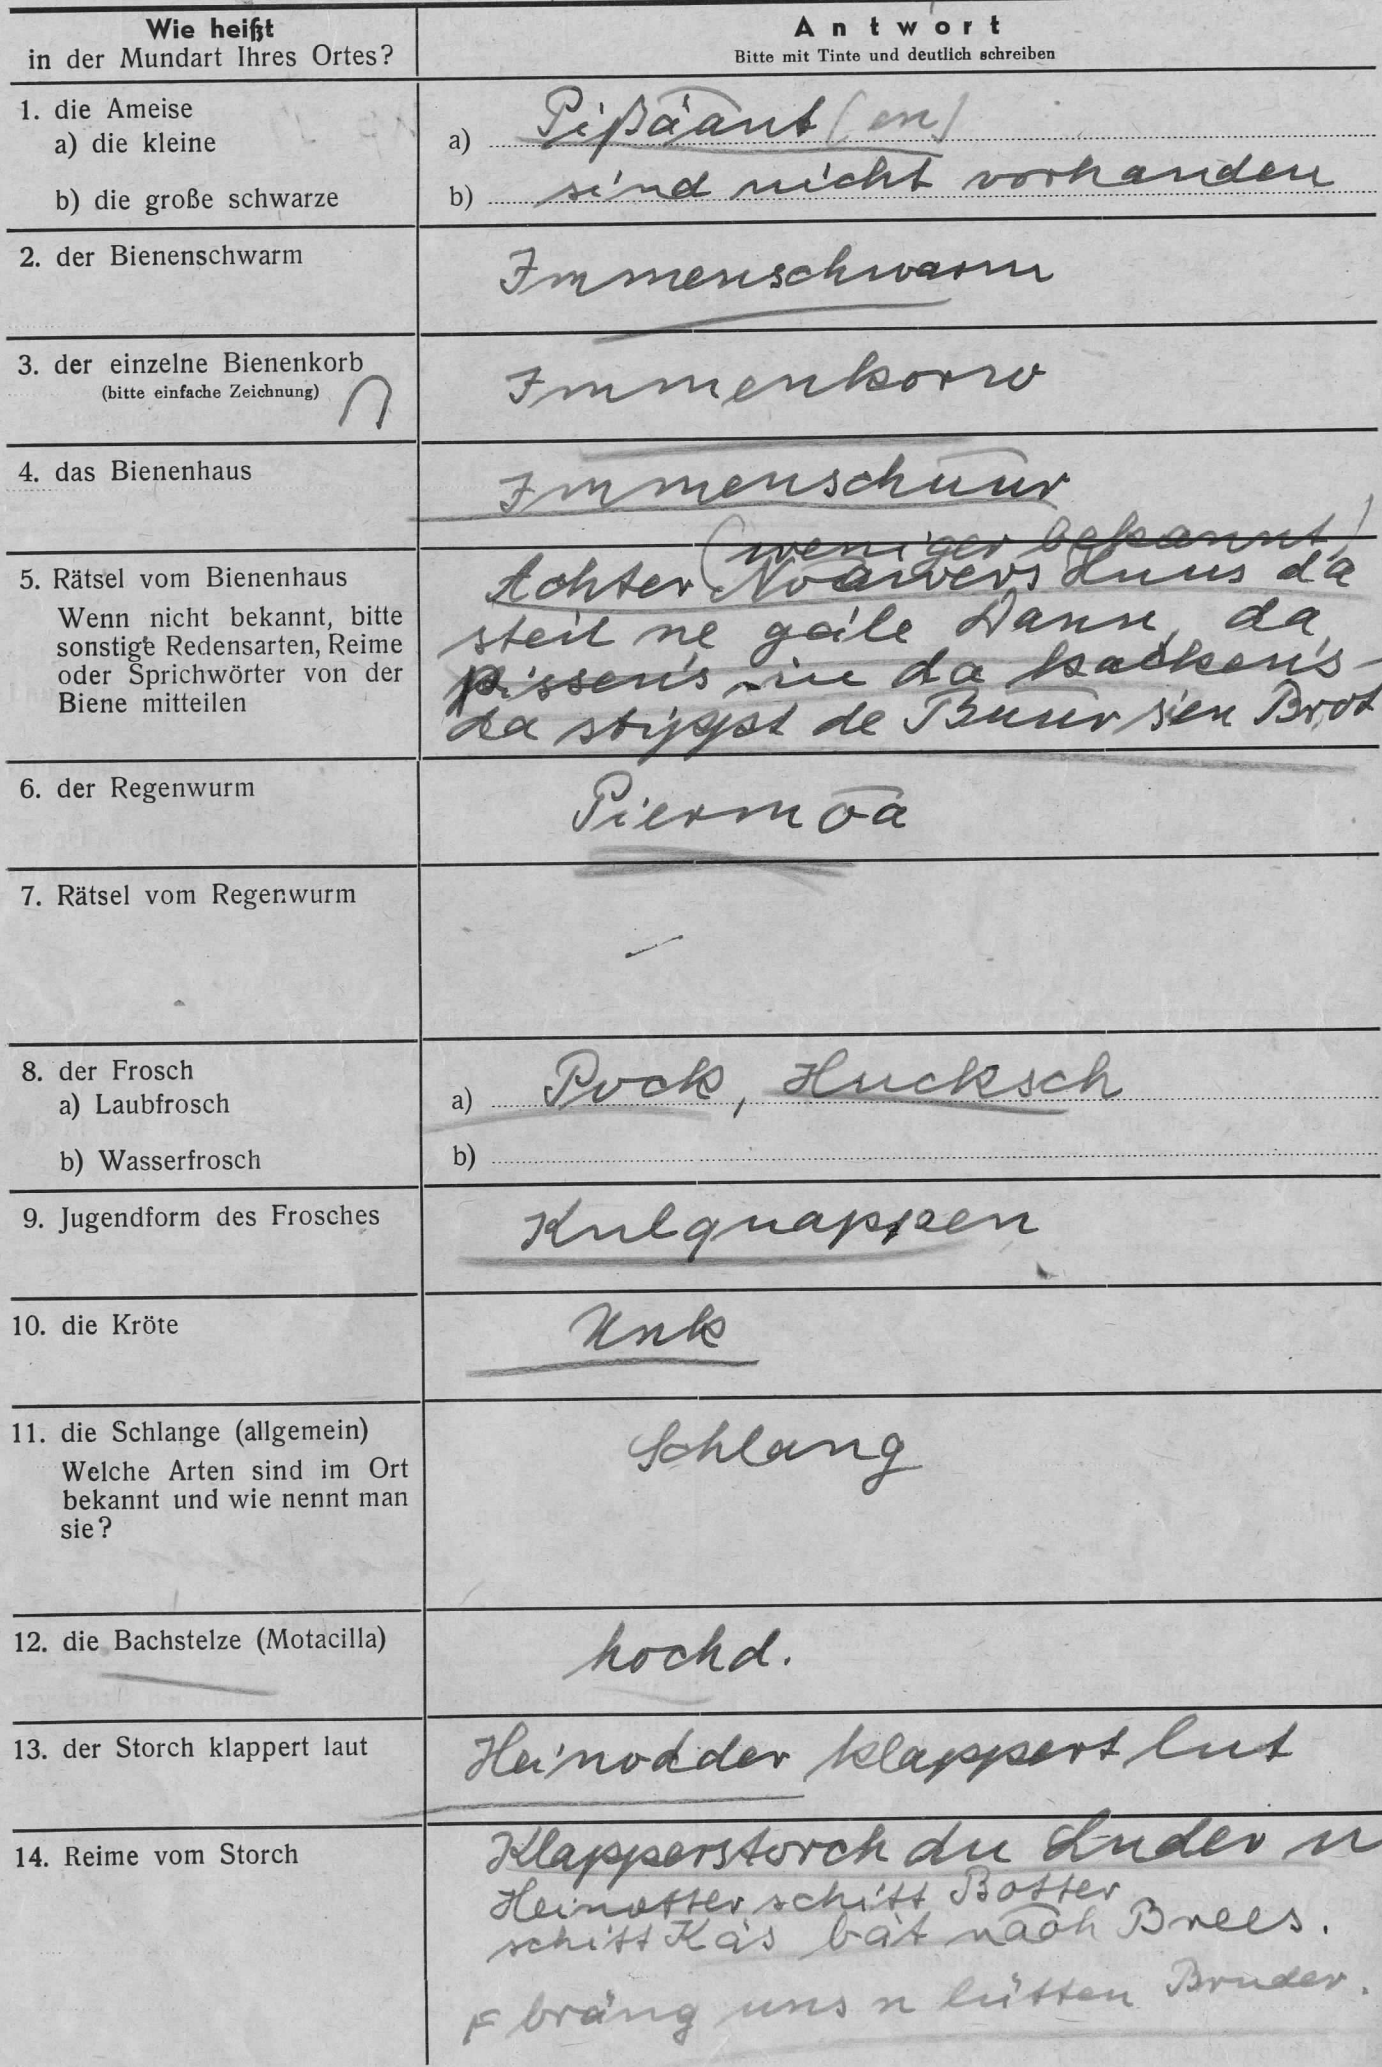 Wie heißt
in der Mundart Ihres Ortes?
Antwort
Bitte mit Tinte und deutlich schreiben
1. die Ameise
a) die kleine
a) Pißäant (en)
b) die große schwarze
b) sind nicht vorhanden
2. der Bienenschwarm
Immenschwarm
3. der einzelne Bienenkorb
(bitte einfache Zeichnung)
Immenkorw
4. das Bienenhaus
Immenschuur
(weniger bekannt)
5. Rätsel vom Bienenhaus
Wenn nicht bekannt, bitte
sonstige Redensarten, Reime
oder Sprichwörter von der
Biene mitteilen
Achter Noawers Huus da
steit ne gäile Dann, da
pissen's in da kacken's
da stippt de Buur sien Brot
6. der Regenwurm
Piermoa
7. Rätsel vom Regenwurm
–
8. der Frosch
a) Laubfrosch
a) Pock, Hucksch
b) Wasserfrosch
b)
9. Jugendform des Frosches
Kulquappen
10. die Kröte
Unk
11. die Schlange (allgemein)
Welche Arten sind im Ort
bekannt und wie nennt man
sie?
Schlang
12. die Bachstelze (Motacilla)
hochd.
13. der Storch klappert laut
Heinodder klappert lut
14. Reime vom Storch
Klapperstorch du Luder
Heinotter schitt Botter
schitt Käs bät naoh Brees.
bräng uns n lütten Bruder.